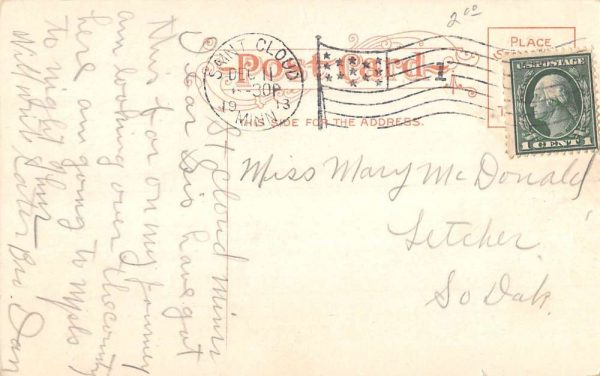 2.00
PLACE
Post Card
SAINT CLOUD
DEC
30P
1913
MINN.
1
THIS SIDE FOR THE ADDRESS.
U.S. POSTAGE
1 CENT 1
Miss Mary McDonald
Letcher
So Dak.
St Cloud Minn
Dear Sis have got
this far on my journey
am looking over the country
here am going to Mpls
to night
Will write
later Bro. Dan